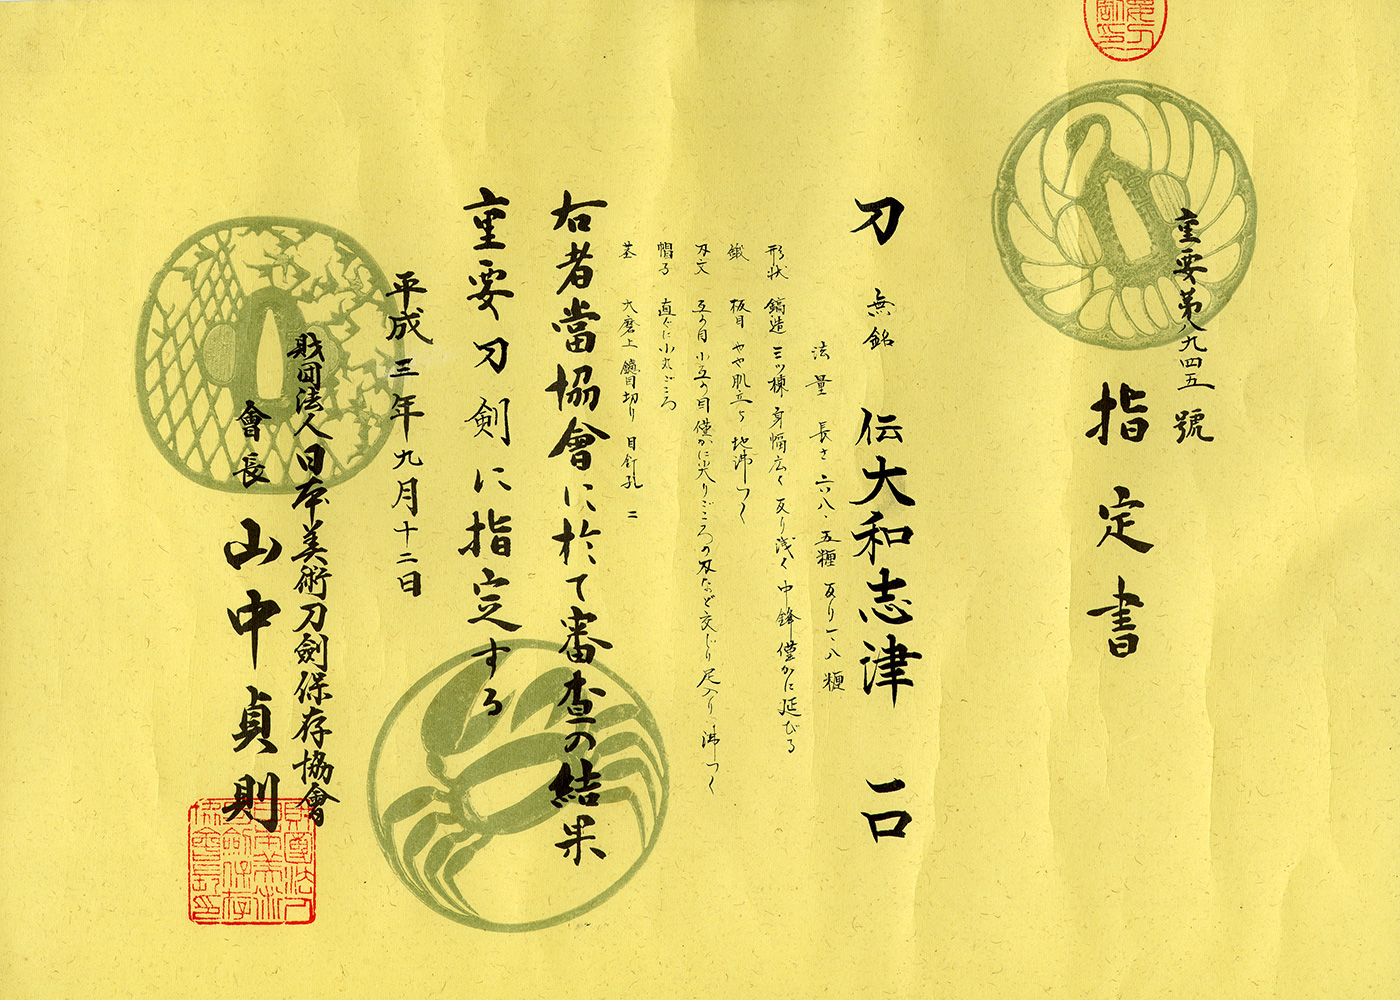 重要第八九四五號
指定書
刀 無銘 伝大和志津 一口
法量 長さ 六八・五糎 反り 一・八糎
形状 鎬造 三ツ棟 身幅広く 反り浅く 中鋒僅かに延びる
鍛 板目 やや肌立ち 地沸つく
刃文 互の目 小互の目 僅かに尖りごころの刃など交じり 足入り 沸つく
帽子 直ぐに小丸ごころ
茎 大磨上 鑢目切り 目釘孔 二
右者當協會に於て審査の結果
重要刀剣に指定する
平成三年九月十二日
財団法人日本美術刀劍保存協會
會長 山中貞則